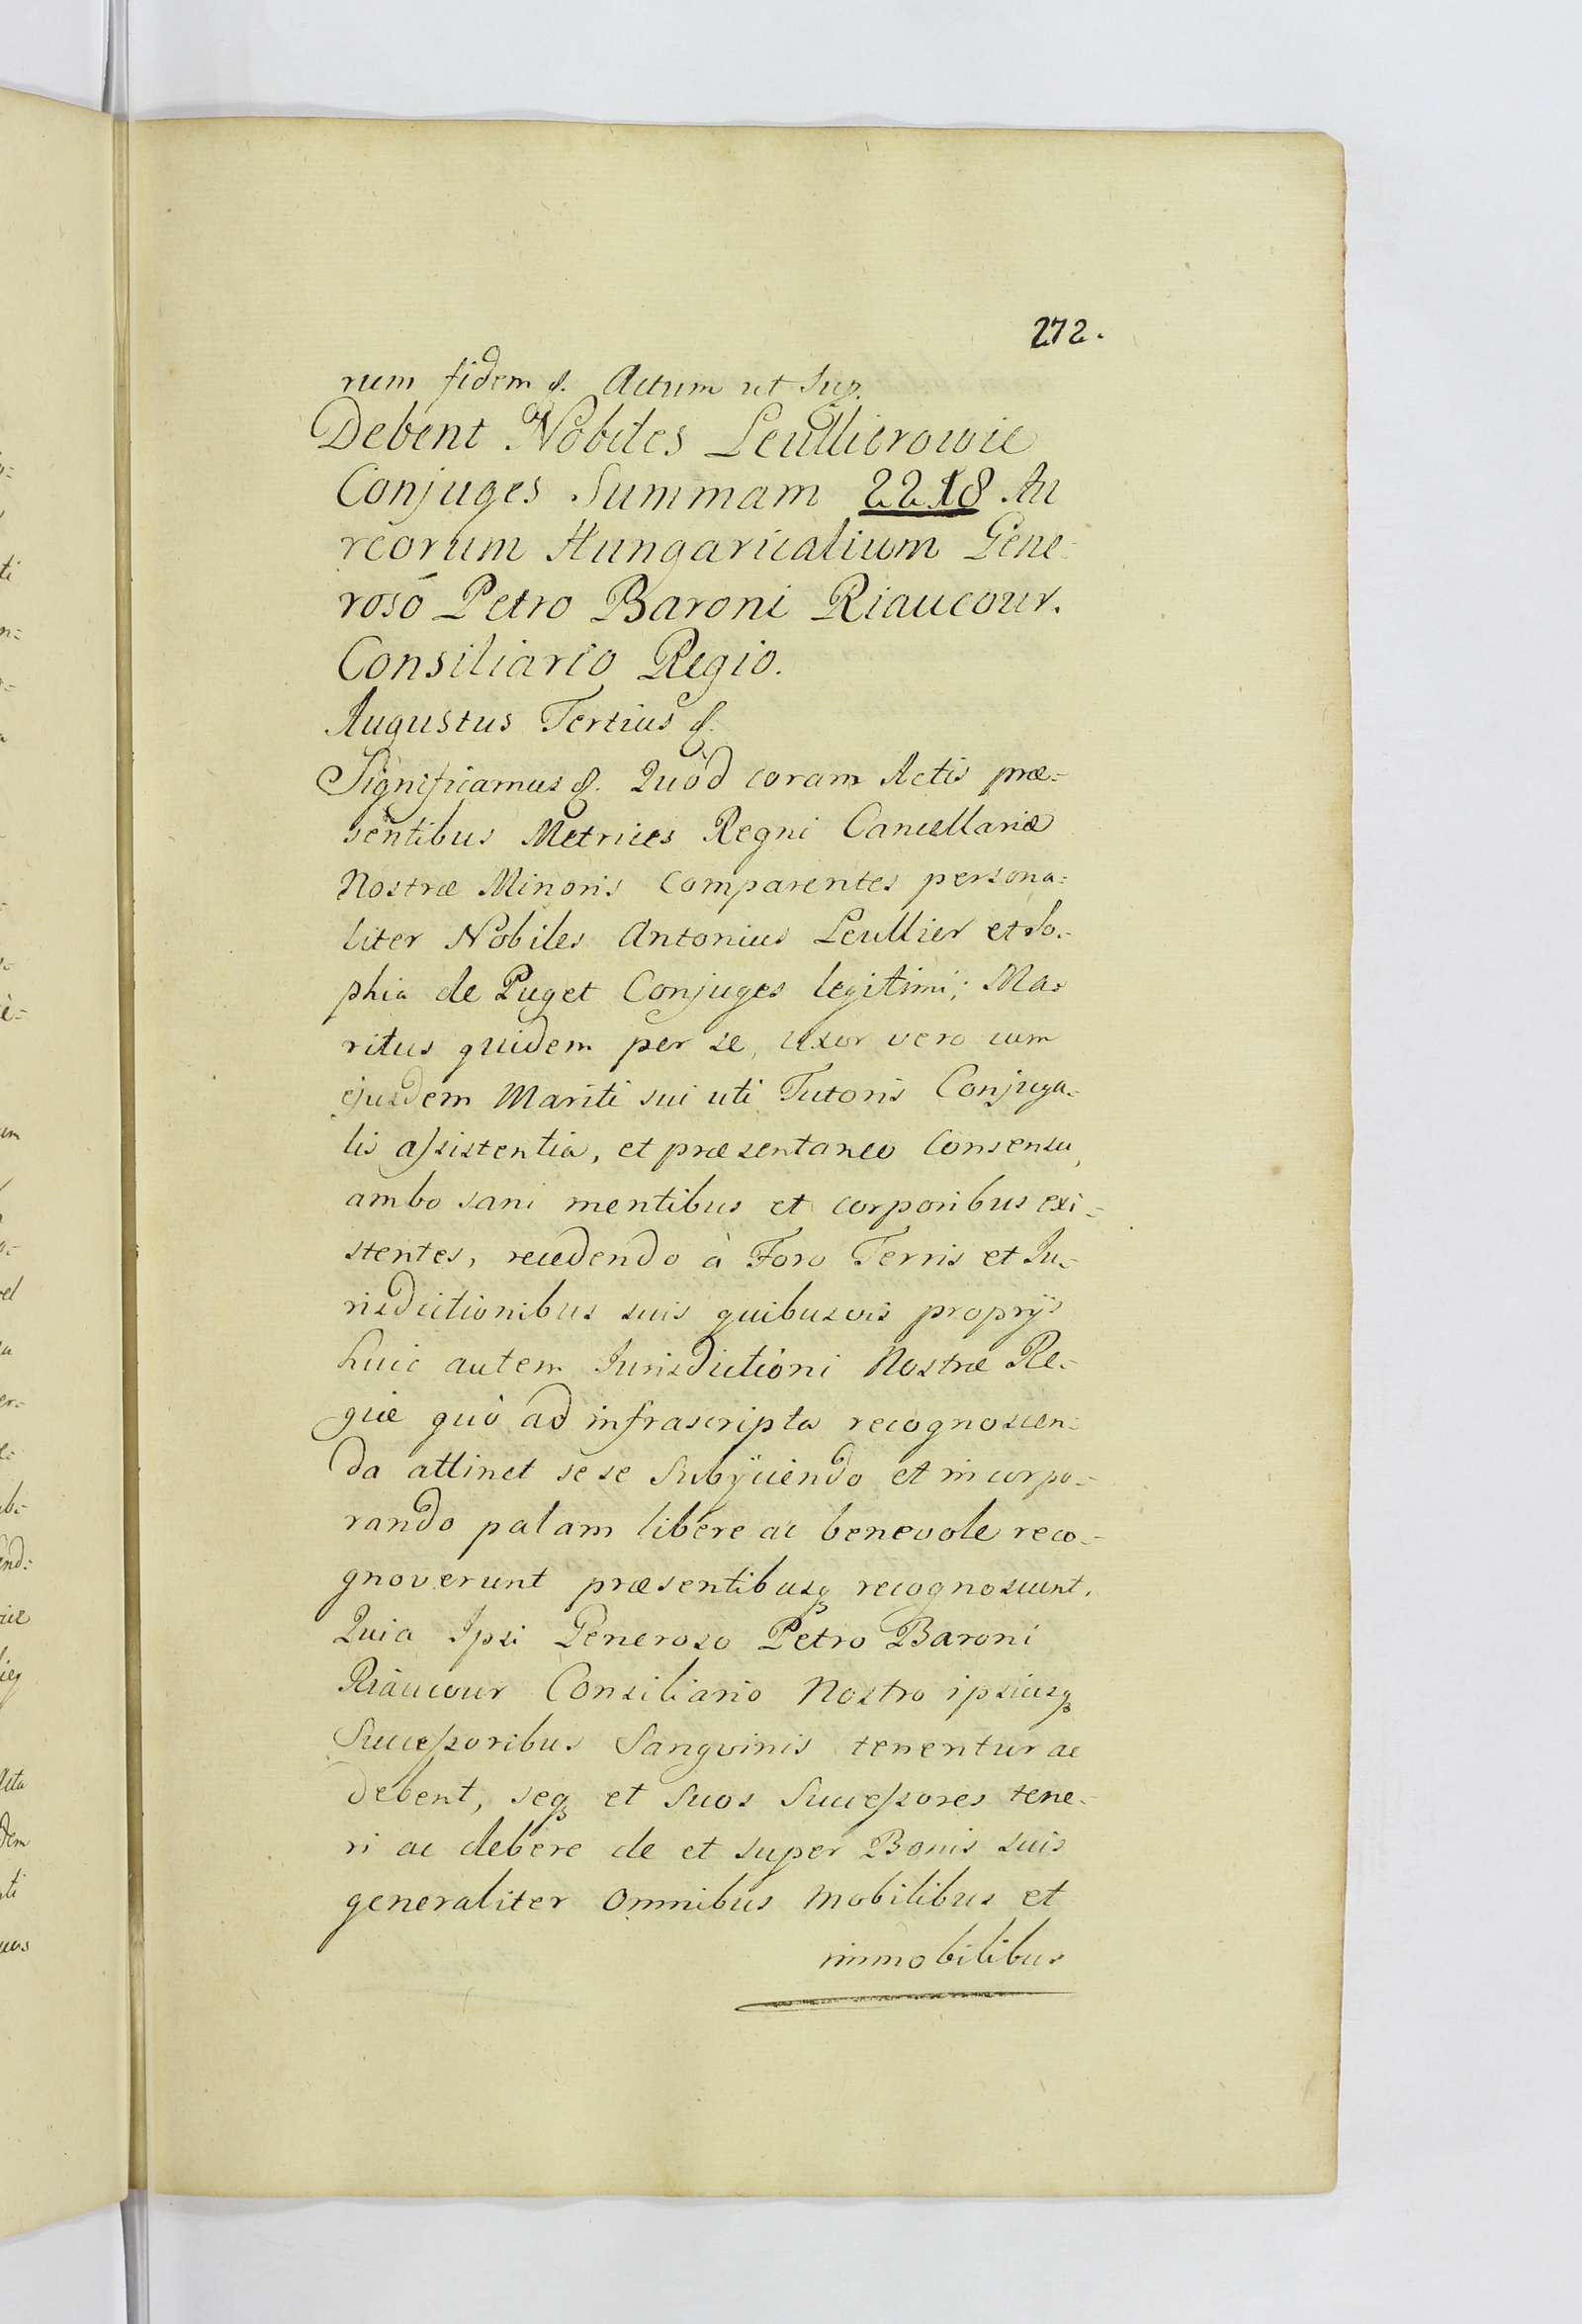 272.
rum fidem &. Actum ut Sup.
Debent Nobiles Leullierowie
Conjuges Summam 2218 Au
reorum Hungaricalium Gene-
rosô Petro Baroni Riaucour.
Consiliario Regio.
Augustus Tertius &.
Significamus &. Quòd coram Actis præ=
sentibus Metrices Regni Cancellariæ
Nostræ Minoris Comparentes persona=
liter Nobiles Antonius Leullier et So=
phia de Puget Conjuges legitimi; Ma=
ritus quidem per se, uxor vero cum
ejusdem Mariti sui uti Tutoris Conjuga=
lis assistentia, et præsentaneo Consensu,
ambo sani mentibus et corporibus exi=
stentes, recedendo à Foro Terris et Ju=
risdictionibus suis quibusvis proprÿs
huic autem Jurisdictioni Nostræ Re=
giæ quò ad infrascripta recognoscen=
da attinet sese Subÿciendo et incorpo=
rando palam libere ac benevole reco=
gnoverunt præsentibusq recognoscunt.
Quia Ipsi Generoso Petro Baroni
Riaucour Consiliario Nostro ipsiusq
Successoribus Sangvinis tenentur ac
debent, seq et Suos Successores tene=
ri ac debere de et super Bonis suis
generaliter Omnibus Mobilibus et
immobilibus